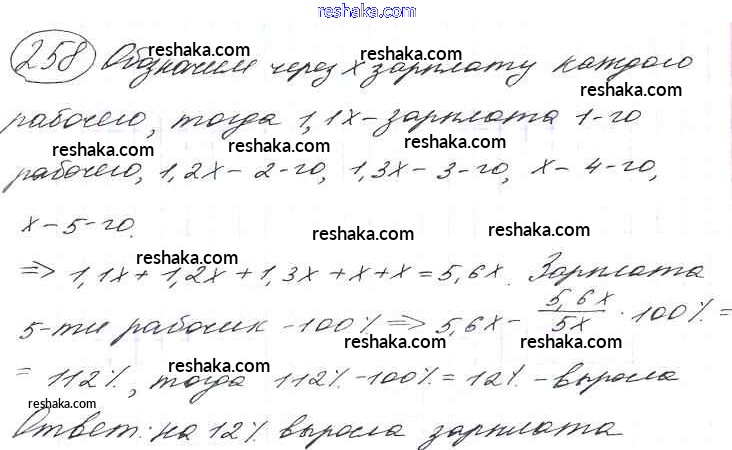 www.reshaka.com
reshaka.com
reshaka.com
258 Обозначим через x зарплату каждого
reshaka.com
рабочего, тогда 1,1x – зарплата 1-го
reshaka.com
reshaka.com
рабочего, 1,2x – 2-го, 1,3x – 3-го, x – 4-го,
reshaka.com
reshaka.com
x – 5-го.
reshaka.com
reshaka.com
=> 1,1x + 1,2x + 1,3x + x + x = 5,6x. Зарплата
reshaka.com
5-ти рабочих – 100% => 5,6x – 5,6x/5x · 100% =
reshaka.com
reshaka.com
= 112%, тогда 112% – 100% = 12% – выросла
reshaka.com
reshaka.com
Ответ: на 12% выросла зарплата